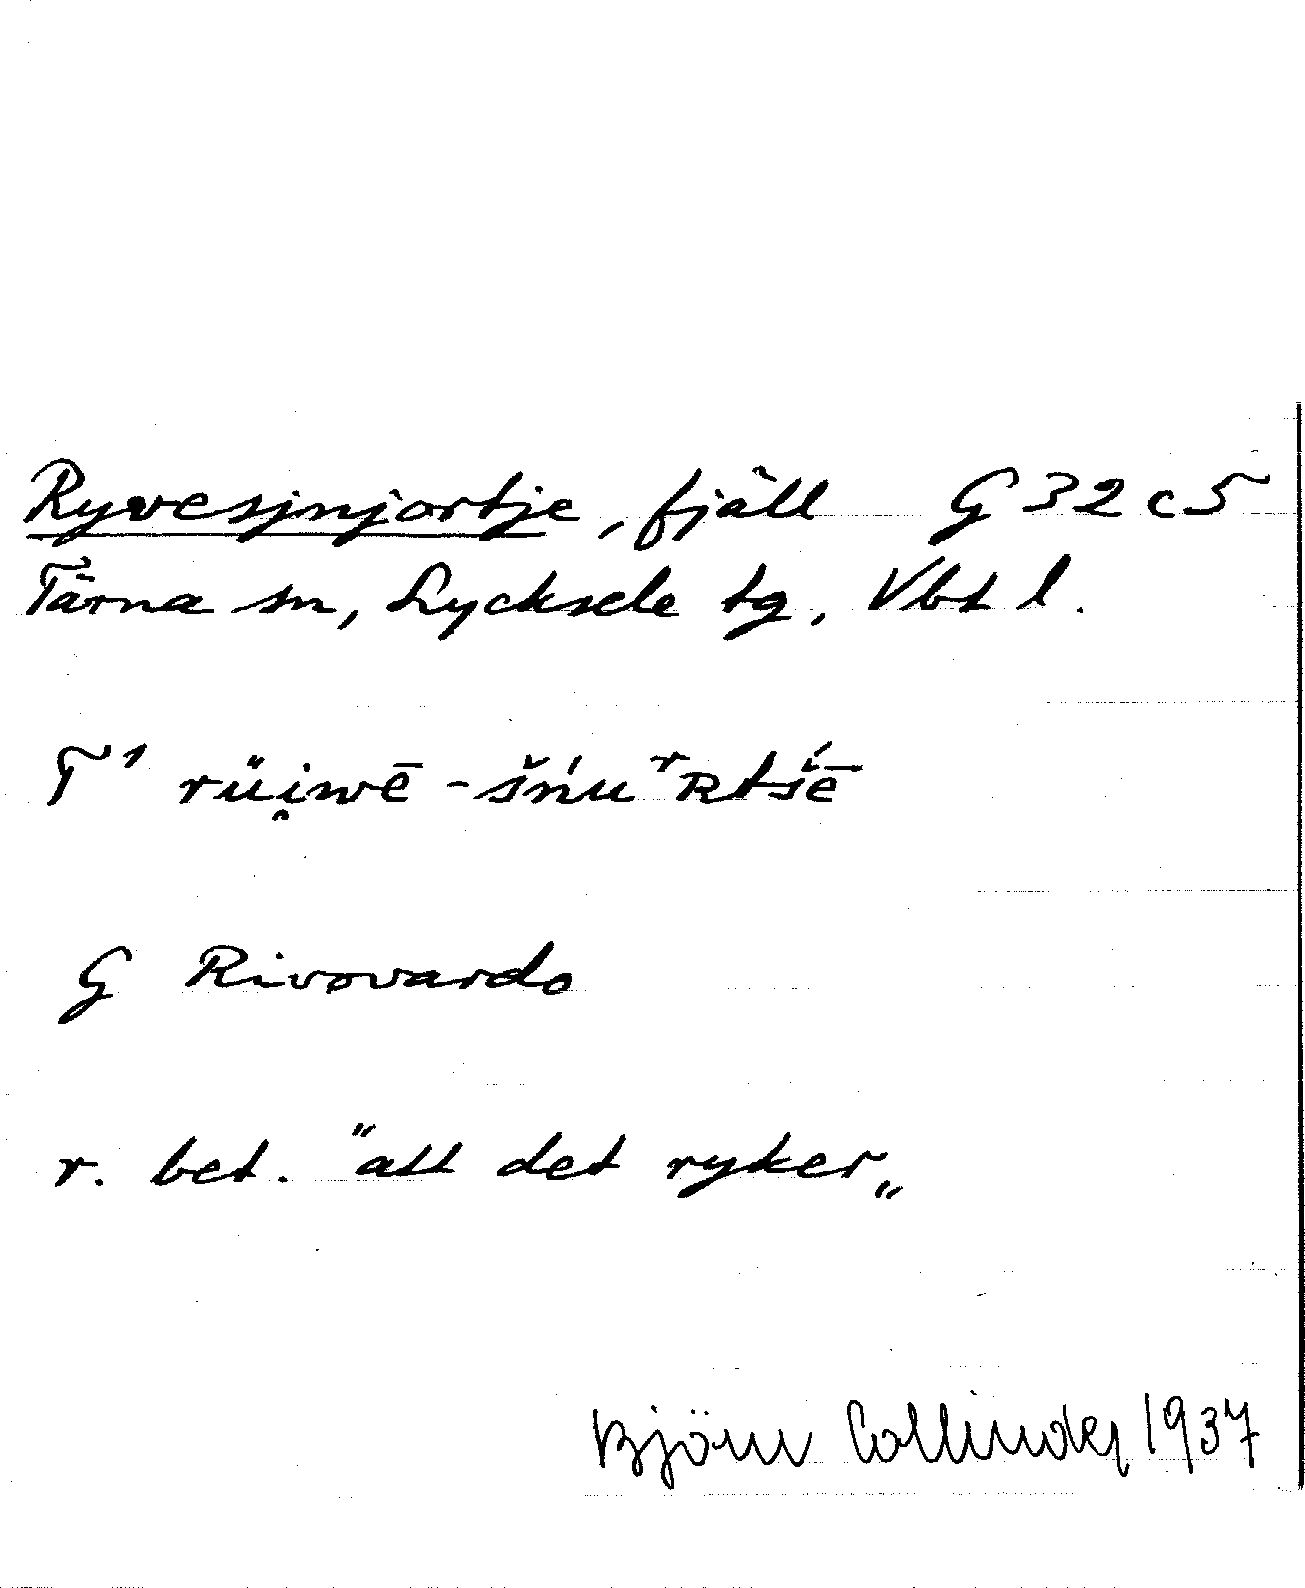 Ryvesjnjortje, fjäll G 32 c 5
Tärna sn, Lycksele tg, Vbt l.
T¹ rüi̯wē -šńuʳRtśē
G Rivovardo
r. bet. "att det ryker„
Björn Collinder 1937